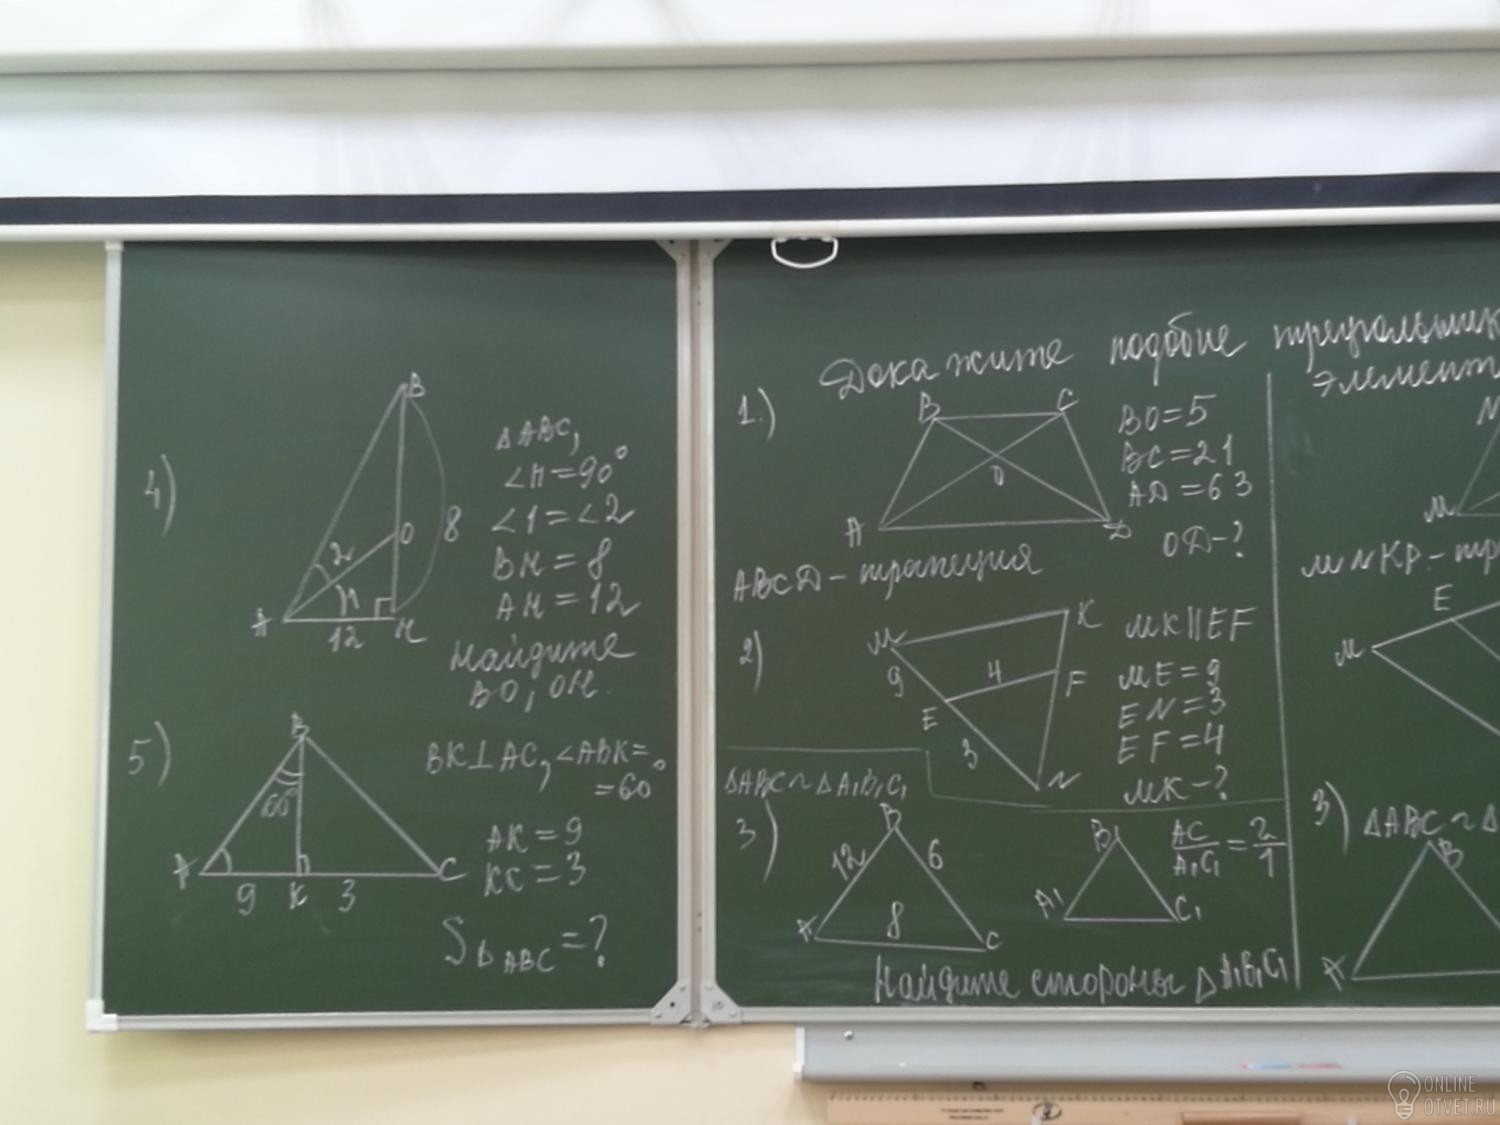 4)
B
O
2
1
8
A
12
H
ΔABC,
∠H=90°
∠1=∠2
BH=8
AH=12
Найдите
BO, OH.
5)
B
60°
A
K
C
9
3
BK⊥AC, ∠ABK=
=60°
AK=9
KC=3
SΔABC=?
Докажите подобие
элемент
1.)
B
C
O
A
D
BO=5
BC=21
AD=63
OD-?
ABCD-трапеция
2)
M
K
9
4
E
F
3
N
MK||EF
ME=9
EN=3
EF=4
MK-?
ΔABC~ΔA₁B₁C₁
3)
B
12
6
A
8
C
B₁
A₁
C₁
AC/A₁C₁=2/1
Найдите стороны ΔA₁B₁C₁
N
M
MNKP-тр
E
M
3) ΔABC~Δ
B
A
ONLINE
OTVET.RU